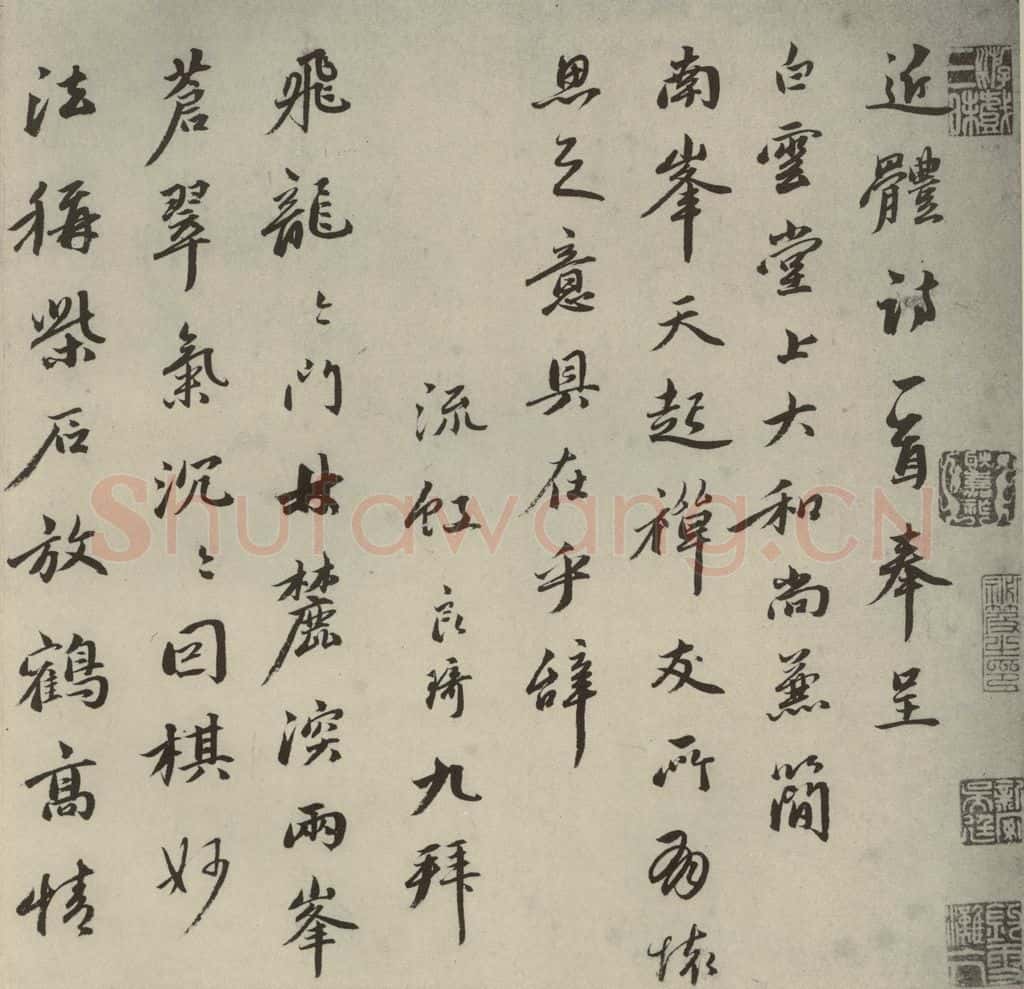 近體詩一首奉呈
白雲堂上大和尚蒹簡
南峯天起禪友所有懷
思之意具在乎辭
流虹良琦九拜
飛龍〻門林麓深兩峯
蒼翠氣沉〻回棋妙
法稱柴石放鶴高情
Shufawang.CN